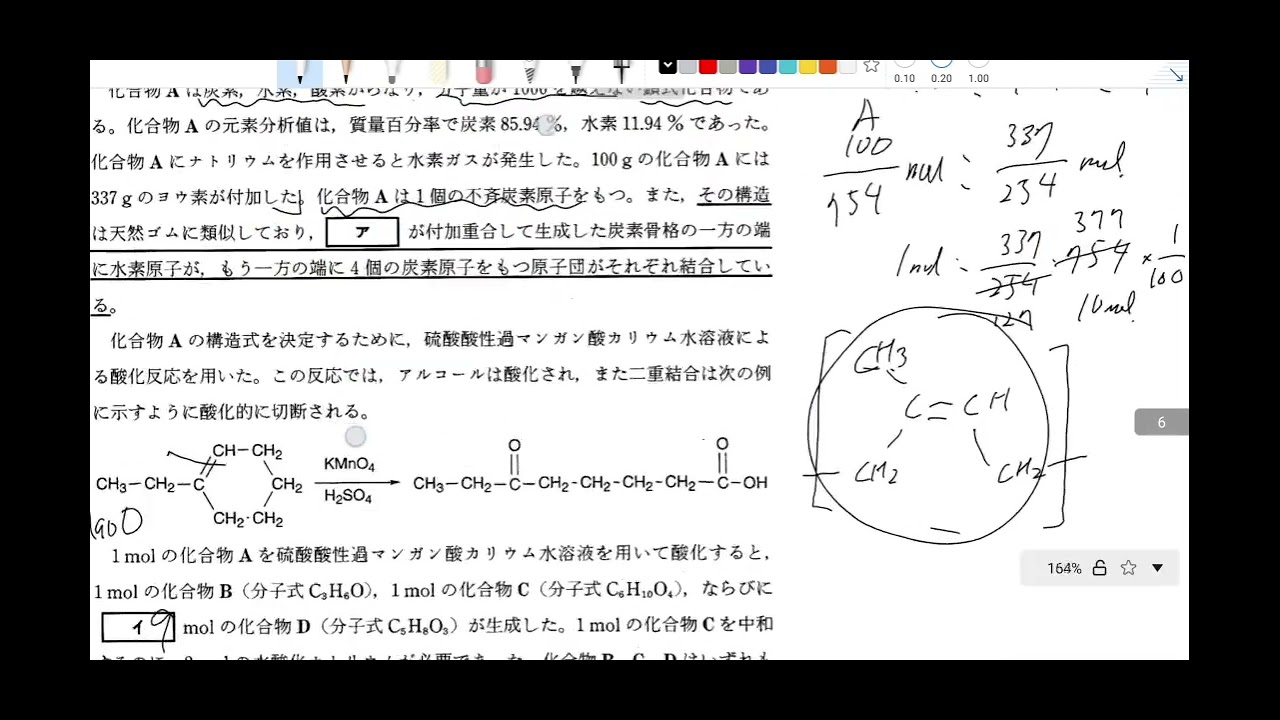 0.10 0.20 1.00
化合物 A は炭素，水素，酸素からなり，分子量が1000を越えない鎖式化合物であ
る。化合物 A の元素分析値は，質量百分率で炭素 85.94 %，水素 11.94 % であった。
化合物 A にナトリウムを作用させると水素ガスが発生した。100 g の化合物 A には
337 g のヨウ素が付加した。化合物 A は 1 個の不斉炭素原子をもつ。また，その構造
は天然ゴムに類似しており， ア が付加重合して生成した炭素骨格の一方の端
に水素原子が，もう一方の端に 4 個の炭素原子をもつ原子団がそれぞれ結合してい
る。
化合物 A の構造式を決定するために，硫酸酸性過マンガン酸カリウム水溶液によ
る酸化反応を用いた。この反応では，アルコールは酸化され，また二重結合は次の例
に示すように酸化的に切断される。
CH-CH₂
CH₃-CH₂
CH₂
CH₂-CH₂
KMnO₄
H₂SO₄
O O
CH₃-CH₂-C-CH₂-CH₂-CH₂-CH₂-C-OH
1 mol の化合物 A を硫酸酸性過マンガン酸カリウム水溶液を用いて酸化すると，
1 mol の化合物 B（分子式 C₃H₆O），1 mol の化合物 C（分子式 C₆H₁₀O₄），ならびに
イ 9 mol の化合物 D（分子式 C₅H₈O₃）が生成した。1 mol の化合物 C を中和
A
100
754 mol : 337
254 mol
1 mol : 337
254
127
754
377
× 1
100
10 mol
CH3
C=CH
CH2 CH2
6
164%